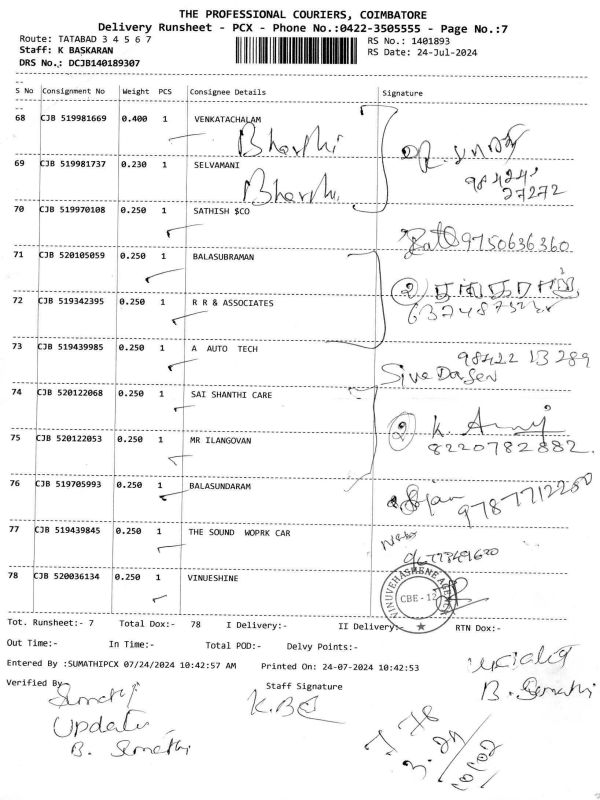 THE PROFESSIONAL COURIERS, COIMBATORE
Delivery Runsheet - PCX - Phone No.:0422-3505555 - Page No.:7
Route: TATABAD 3 4 5 6 7
RS No.: 1401893
Staff: K BASKARAN
RS Date: 24-Jul-2024
DRS No.: DCJB140189307
S No Consignment No Weight PCS Consignee Details Signature
68 CJB 519981669 0.400 1 VENKATACHALAM
Bharthi
98424
27272
69 CJB 519981737 0.230 1 SELVAMANI
Bharthi
70 CJB 519970108 0.250 1 SATHISH $CO
9750636360
71 CJB 520105059 0.250 1 BALASUBRAMAN
2
72 CJB 519342395 0.250 1 R R & ASSOCIATES
73 CJB 519439985 0.250 1 A AUTO TECH
98422 13 289
Siva Dasen
74 CJB 520122068 0.250 1 SAI SHANTHI CARE
2 K.
8220782882.
75 CJB 520122053 0.250 1 MR ILANGOVAN
76 CJB 519705993 0.250 1 BALASUNDARAM
9787712280
77 CJB 519439845 0.250 1 THE SOUND WOPRK CAR
78 CJB 520036134 0.250 1 VINUESHINE
CBE - 12
Tot. Runsheet:- 7 Total Dox:- 78 I Delivery:- II Delivery:- RTN Dox:-
Out Time:- In Time:- Total POD:- Delvy Points:-
Entered By :SUMATHIPCX 07/24/2024 10:42:57 AM Printed On: 24-07-2024 10:42:53
Verified By
Staff Signature
Sumathi
K.B
B. Sumathi
Update
B. Sumathi